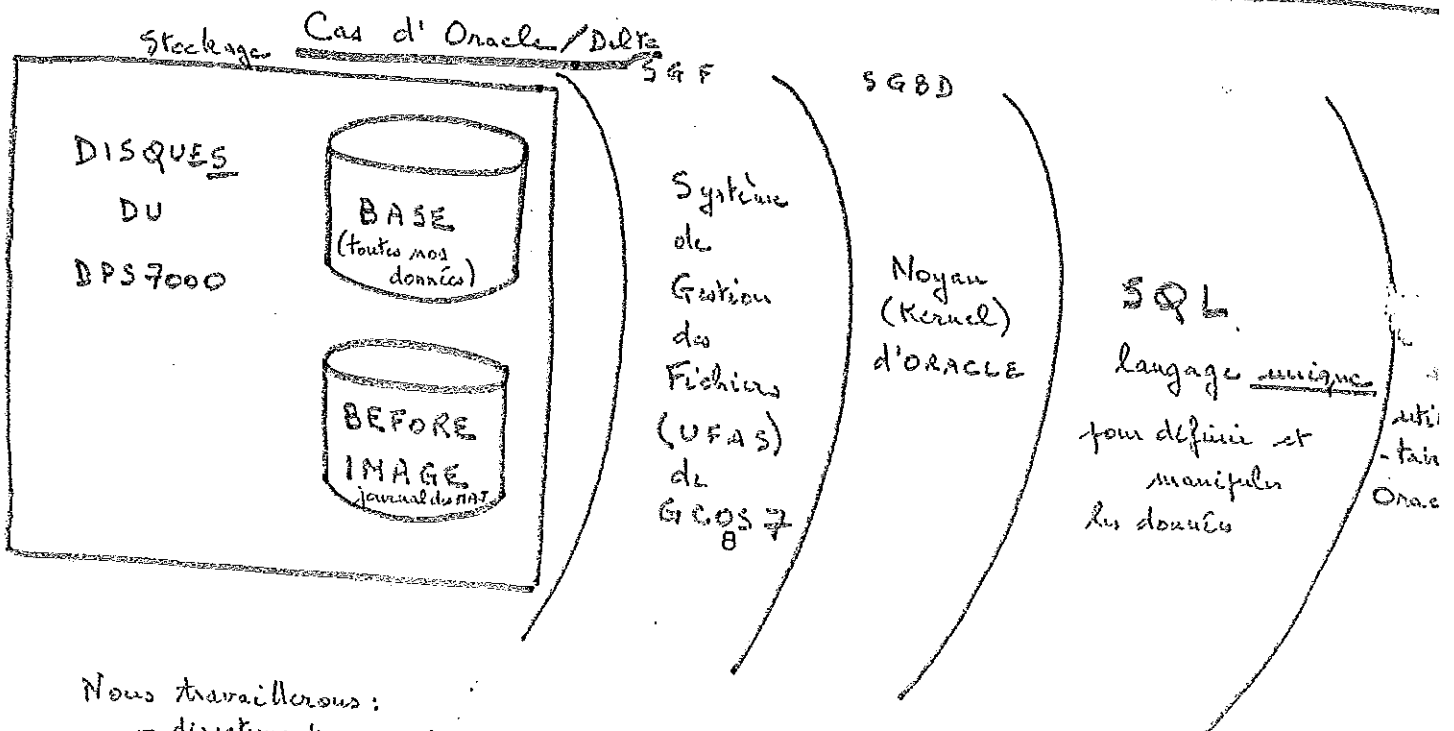 Stockage
Cas d'Oracle/Delta
SGF
SGBD
DISQUES
DU
DPS7000
BASE
(toutes nos
données)
BEFORE
IMAGE
journal des MAJ
Système
de
Gestion
des
Fichiers
(UFAS)
de
GCOS 7
8
Noyau
(Kernel)
d'ORACLE
SQL
langage unique
pour définir et
manipuler
les données
uti
-tair
Orac
Nous travaillerons :